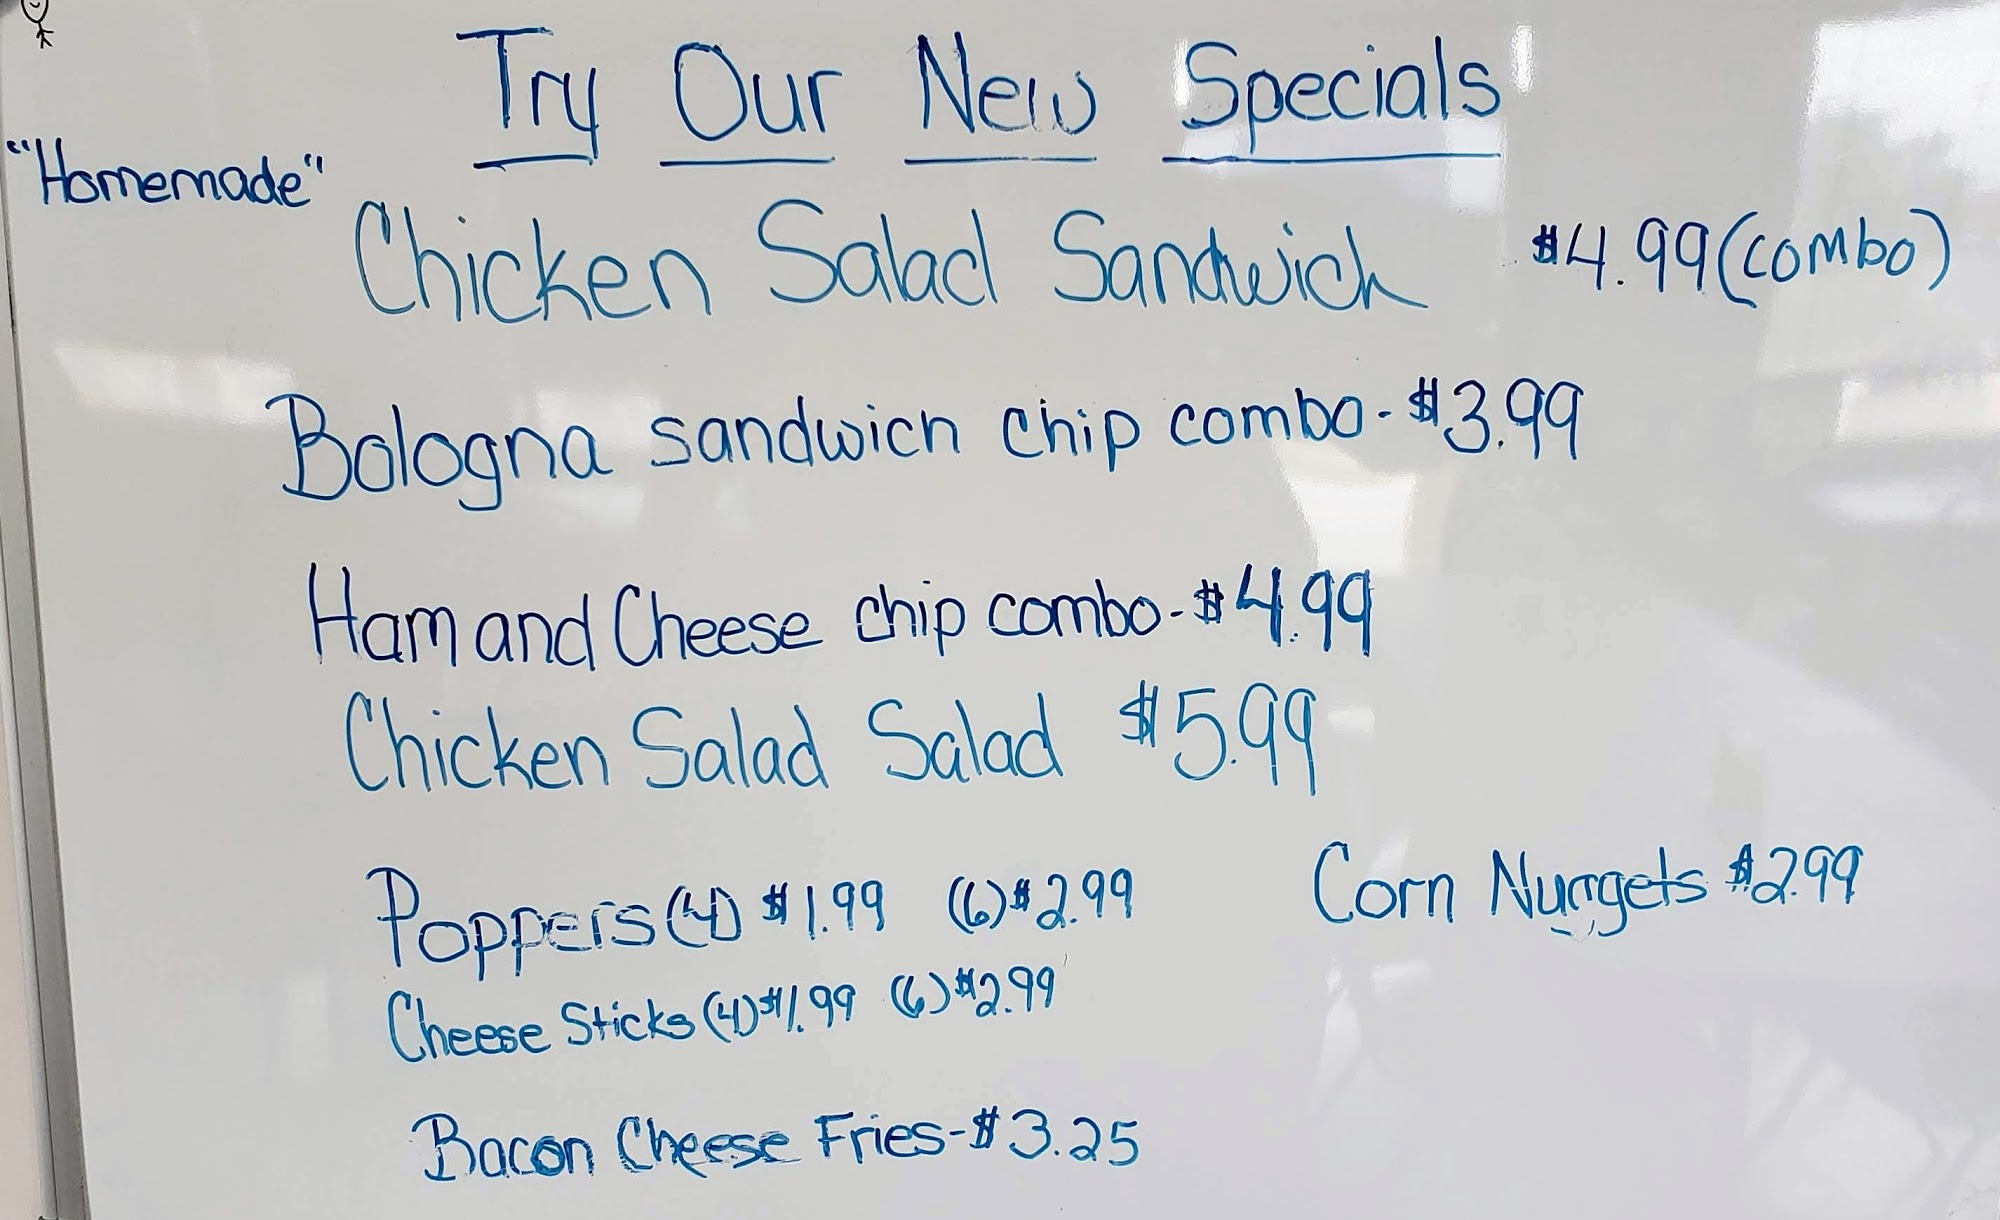 Try Our New Specials
"Homemade"
Chicken Salad Sandwich $4.99 (combo)
Bologna sandwich chip combo - $3.99
Ham and Cheese chip combo - $4.99
Chicken Salad Salad $5.99
Poppers (4) $1.99 (6) $2.99 Corn Nuggets $2.99
Cheese Sticks (4) $1.99 (6) $2.99
Bacon Cheese Fries - $3.25